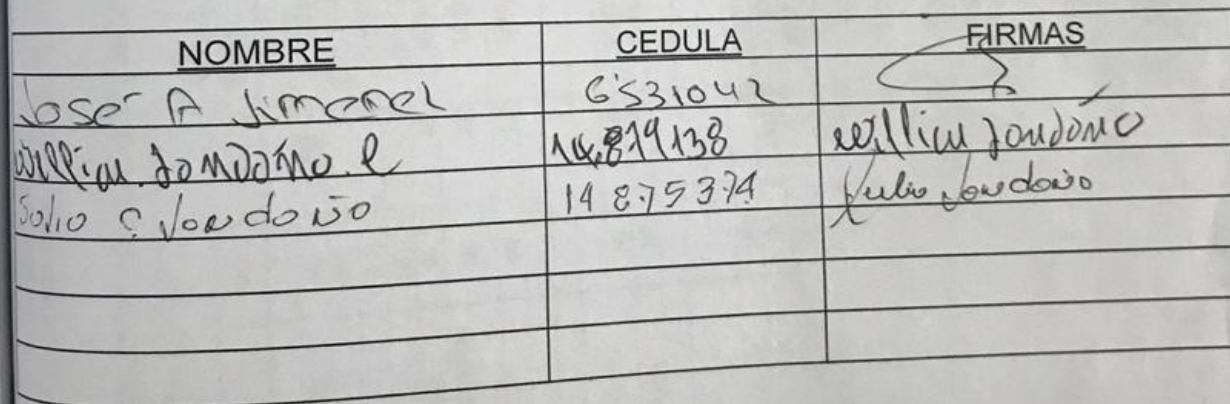 NOMBRE CEDULA FIRMAS
José A Jimenez 6531042
William Londoño. l 14.879138 William Londoño
Julio C Londoño 14875374 Julio Londoño